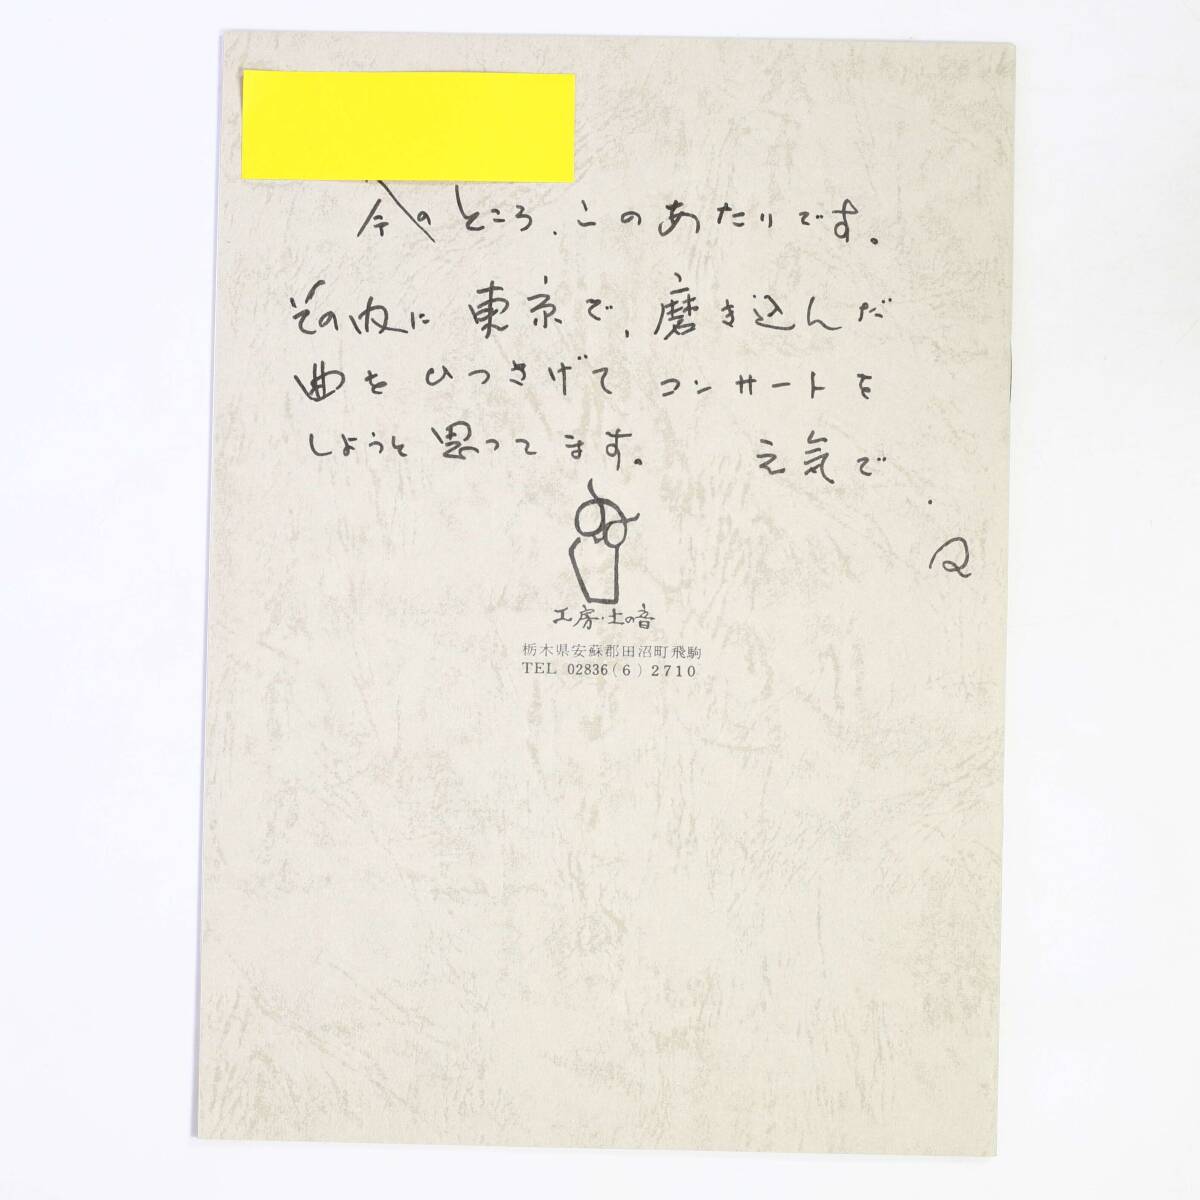 今のところ、このあたりです。
その内に東京で、磨き込んだ
曲をひっさげてコンサートを
しようと思ってます。 元気で
工房・土の音
栃木県安蘇郡田沼町飛駒
TEL 02836(6)2710